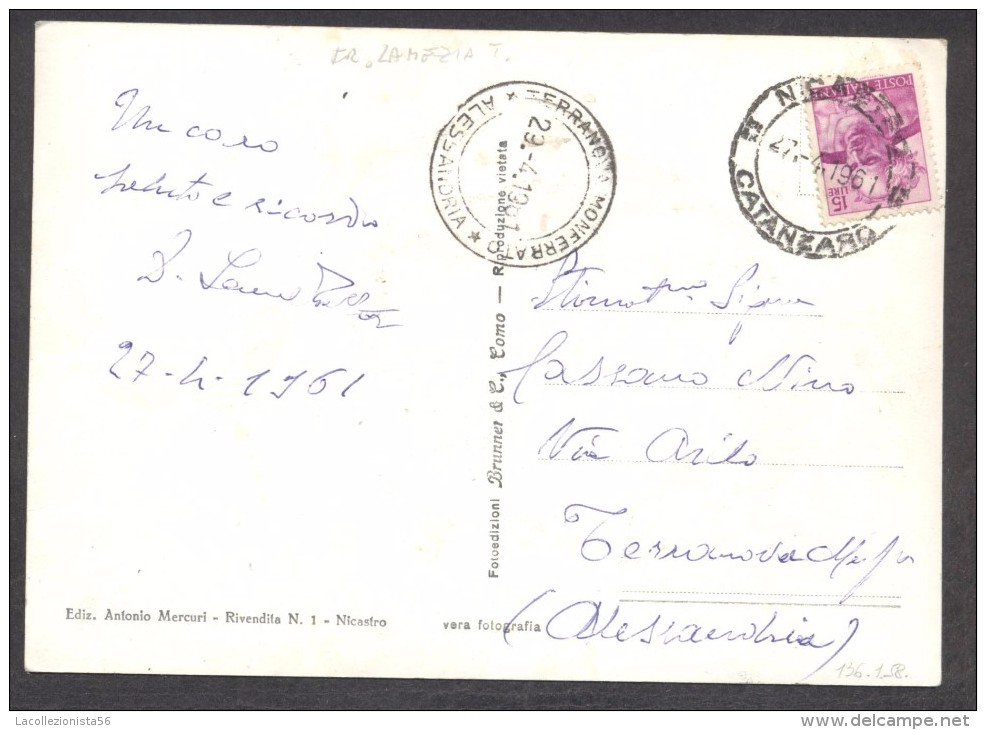 LAMEZIA T.
Un caro
saluto e ricordo
27-4-1961
Ediz. Antonio Mercuri - Rivendita N. 1 - Nicastro
TERRANOVA MONFERRATO * ALESSANDRIA *
29.-4.1961
Fotoedizioni Brunner & C., Como — Riproduzione vietata
vera fotografia
POSTE ITALIANE
15
LIRE
27.-4.1961
CATANZARO
Cassano Nino
Via Asilo
Terranova
(Alessandria)
136.158.
Lacollezionista56
www.delcampe.net